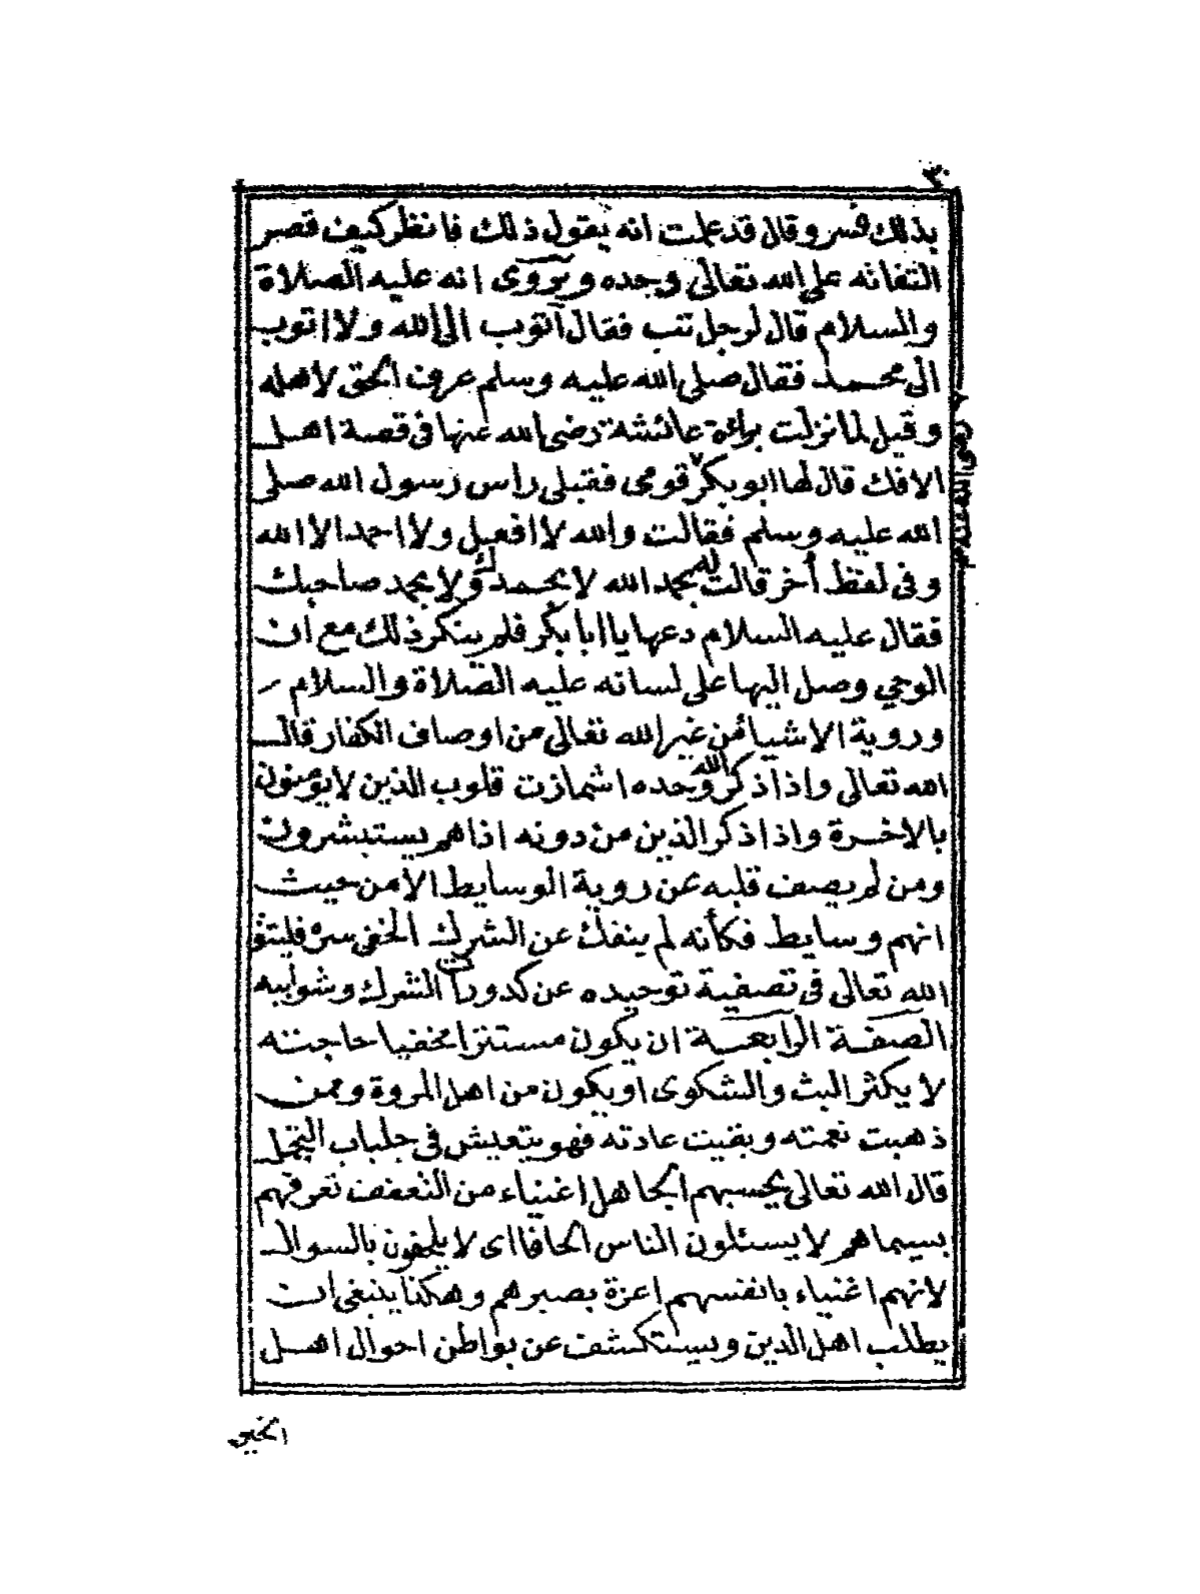 بذلك فسر وقال قد علمت انه يقول ذلك فانظر كيف قصر
التفاته على الله تعالى وحده ويروى انه عليه الصلاة
والسلام قال لرجل تب فقال اتوب الى الله ولا اتوب
الى محمد فقال صلى الله عليه وسلم عرف الحق لاهله
وقيل لما نزلت براءة عائشة رضى الله عنها فى قصة اهل
الافك قال لها ابو بكر قومى فقبلى راس رسول الله صلى
الله عليه وسلم فقالت والله لا افعل ولا احمد الا الله
وفى لفظ أخر قالت بحمد الله لا بحمدك ولا بحمد صاحبك
فقال عليه السلام دعها يا ابا بكر فلم ينكر ذلك مع ان
الوحي وصل اليها على لسانه عليه الصلاة والسلام
وروية الاشيا من غير الله تعالى من اوصاف الكفار قال
الله تعالى واذا ذكر الله وحده اشمازت قلوب الذين لا يومنون
بالاخرة واذا ذكر الذين من دونه اذا هم يستبشرون
ومن لم يصف قلبه عن روية الوسايط الا من حيث
انهم وسايط فكأنه لم ينفك عن الشرك الخفي سره فليتق
الله تعالى فى تصفية توحيده عن كدورات الشرك وشوايبه
الصفة الرابعة ان يكون مستترا مخفيا حاجته
لا يكثر البث والشكوى او يكون من اهل المروة وممن
ذهبت نعمته وبقيت عادته فهو يتعيش فى جلباب التجمل
قال الله تعالى يحسبهم الجاهل اغنياء من التعفف تعرفهم
بسيماهم لا يسئلون الناس الحافا اى لا يلحفون بالسوال
لانهم اغنياء بانفسهم اعزة بصبرهم وهكذا ينبغى ان
يطلب اهل الدين ويستكشف عن بواطن احوال اهل
الخير